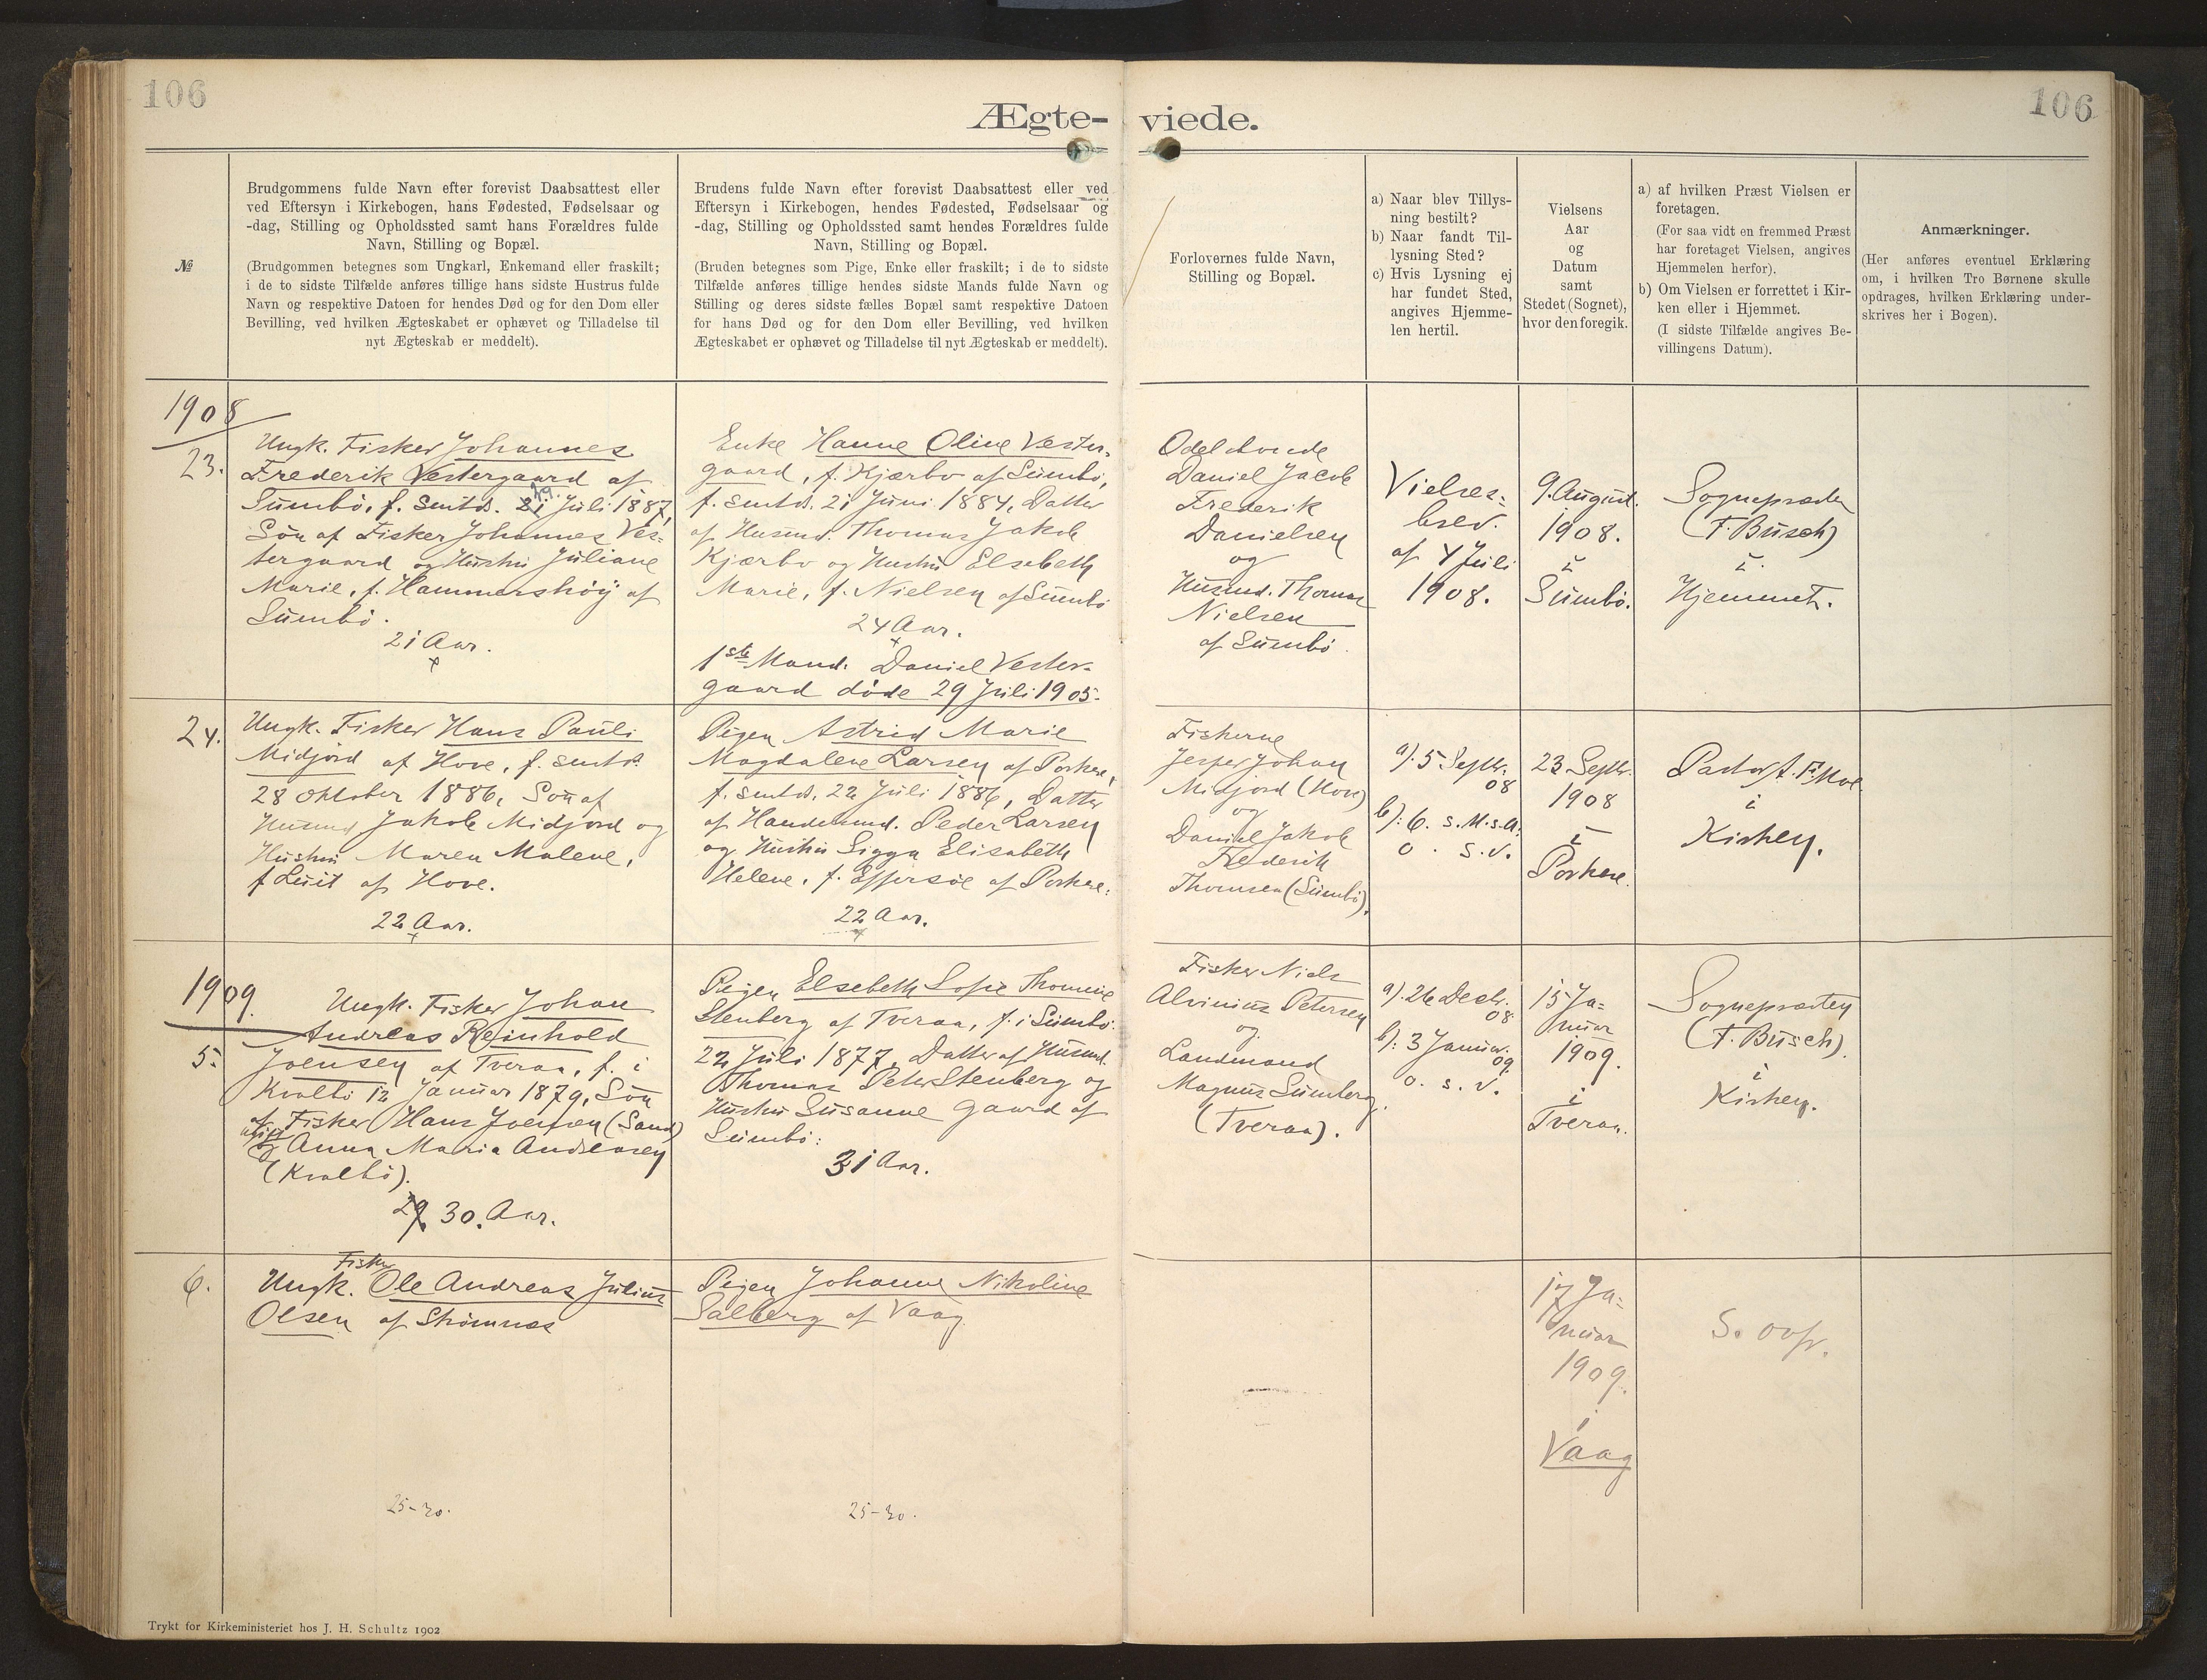 106
106
Ægte-
viede.
№
Brudgommens fulde Navn efter forevist Daabsattest eller
ved Eftersyn i Kirkebogen, hans Fødested, Fødselsaar og
-dag, Stilling og Opholdssted samt hans Forældres fulde
Navn, Stilling og Bopæl.
(Brudgommen betegnes som Ungkarl, Enkemand eller fraskilt;
i de to sidste Tilfælde anføres tillige hans sidste Hustrus fulde
Navn og respektive Datoen for hendes Død og for den Dom eller
Bevilling, ved hvilken Ægteskabet er ophævet og Tilladelse til
nyt Ægteskab er meddelt).
Brudens fulde Navn efter forevist Daabsattest eller ved
Eftersyn i Kirkebogen, hendes Fødested, Fødselsaar og
-dag, Stilling og Opholdssted samt hendes Forældres fulde
Navn, Stilling og Bopæl.
(Bruden betegnes som Pige, Enke eller fraskilt; i de to sidste
Tilfælde anføres tillige hendes sidste Mands fulde Navn og
Stilling og deres sidste fælles Bopæl samt respektive Datoen
for hans Død og for den Dom eller Bevilling, ved hvilken
Ægteskabet er ophævet og Tilladelse til nyt Ægteskab er meddelt).
Forlovernes fulde Navn,
Stilling og Bopæl.
a) Naar blev Tillys-
ning bestilt?
b) Naar fandt Til-
lysning Sted?
c) Hvis Lysning ej
har fundet Sted,
angives Hjemme-
len hertil.
Vielsens
Aar
og
Datum
samt
Stedet (Sognet),
hvor den foregik.
a) af hvilken Præst Vielsen er
foretagen.
(For saa vidt en fremmed Præst
har foretaget Vielsen, angives
Hjemmelen herfor).
b) Om Vielsen er forrettet i Kir-
ken eller i Hjemmet.
(I sidste Tilfælde angives Be-
villingens Datum).
Anmærkninger.
(Her anføres eventuel Erklæring
om, i hvilken Tro Børnene skulle
opdrages, hvilken Erklæring under-
skrives her i Bogen).
1908
23.
Ungk. Fisker Johannes
Frederik Vestergaard af
Sumbö, f. smtds. Juli 1887,
Sön af Fisker Johannes Ves-
tergaard og Hustru Juliane
Marie, f. Hammershöj af
Sumbö.
21 Aar.
Enke Hanne Oline Vester-
gaard, f. Kjærbo af Sumbö,
f. smtds. 21 Juni 1884, Datter
af Husmd. Thomas Jakob
Kjærbo og Hustru Elsebeth
Marie, f. Nielsen af Sumbö
24 Aar.
1ste Mand. Daniel Vester-
gaard döde 29 Juli 1905.
Daniel Jacob
Frederik
Danielsen
og
Husmd. Thomas
Nielsen
af Sumbö.
Vielses-
brev.
af 4 Juli
1908.
9. August.
1908.
i
Sumbö.
Sognepræsten
(F. Busch)
i
Hjemmet.
24.
Ungk. Fisker Hans Pauli
Midjord af Hove, f. smtds.
28 Oktober 1886, Sön af
Husmd Jakob Midjord og
Hustru Maren Malene,
f. Luit af Hove.
22 Aar.
Pigen Astrid Marie
Magdalene Larsen af Porkere,
f. smtds. 22 Juli 1886, Datter
af Handelsmd. Peder Larsen
og Hustru Sigga Elisabeth
Helene, f. Effersöe af Porkere.
22 Aar.
Fiskerne
Jesper Johan
Midjord (Hove)
og
Daniel Jakob
Frederik
Thomsen (Sumbö).
a). 5 Septbr.
08
b): 6. s. M. s. A.
o. s. v.
23 Septbr.
1908
i
Porkere.
Pastor
i
Kirken.
1909.
5.
Ungk. Fisker Johan
Andreas Reinhold
Joensen af Tveraa, f. i
Kvalbö 12 Januar 1879, Sön
af Fisker Hans Joensen (Sand)
Anna Maria Andreasen
(Kvalbö).
29 30. Aar.
Pigen Elsebeth Sofie Thomine
Stenberg af Tveraa, f. i Sumbö
22 Juli 1877, Datter af Husmd.
Thomas Peter Stenberg og
Hustru Susanne Gaard af
Sumbö:
31 Aar.
Fisker Niels
Alvinius Petersen
og
Landmand
Magnus Sumberg.
(Tveraa).
a). 26 Decbr.
08
b): 3 Januar.
09.
o. s. v.
15 Ja-
nuar
1909.
i
Tveraa.
Sognepræsten
(F. Busch).
i
Kirken.
6.
Fisker
Ungk. Ole Andreas Julius
Olsen af Skömnæs
Pigen Johanne Nikoline
Salberg af Vaag
17 Ja-
nuar
1909.
i
Vaag
S. ovfr.
25-30.
25-30.
Trykt for Kirkeministeriet hos J. H. Schultz 1902